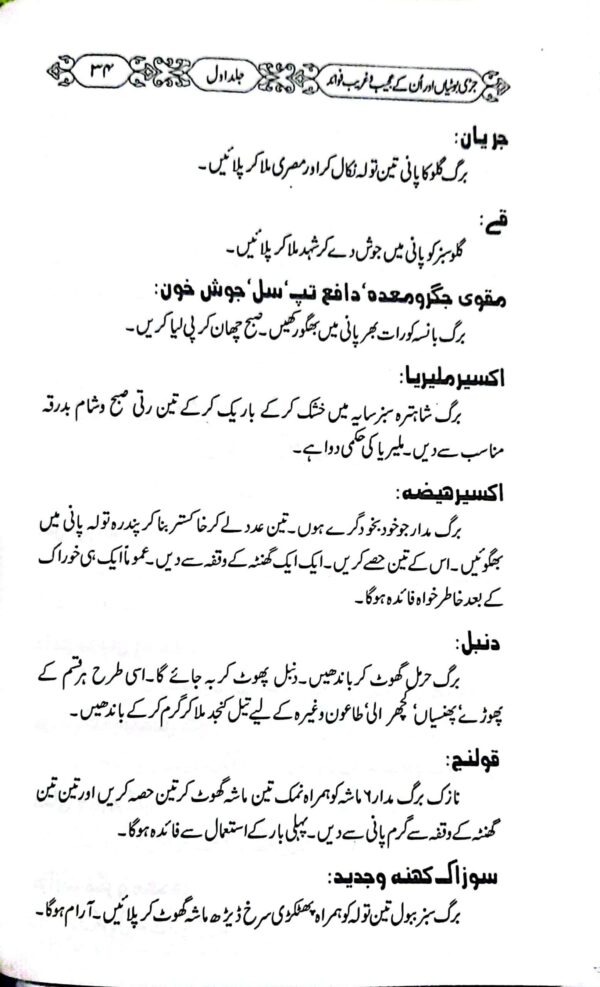 جڑی بوٹیاں اور اُن کے عجیب و غریب فوائد
جلد اول
۳۴
جریان:
برگ گلو کا پانی تین تولہ نکال کر اور مصری ملا کر پلائیں۔
قے:
گلو سبز کو پانی میں جوش دے کر شہد ملا کر پلائیں۔
مقوی جگر و معدہ، دافع تپ، سل، جوش خون:
برگ بانسہ کو رات بھر پانی میں بھگو رکھیں۔ صبح چھان کر پی لیا کریں۔
اکسیر ملیریا:
برگ شاہترہ سبز سایہ میں خشک کر کے باریک کر کے تین رتی صبح و شام بدرقہ
مناسب سے دیں۔ ملیریا کی حکمی دوا ہے۔
اکسیر ھیضہ:
برگ مدار جو خود بخود گرے ہوں۔ تین عدد لے کر خاکستر بنا کر پندرہ تولہ پانی میں
بھگوئیں۔ اس کے تین حصے کریں۔ ایک ایک گھنٹہ کے وقفہ سے دیں۔ عموماً ایک ہی خوراک
کے بعد خاطر خواہ فائدہ ہوگا۔
دنبل:
برگ حرمل گھوٹ کر باندھیں۔ دنبل پھوٹ کر بہ جائے گا۔ اسی طرح ہر قسم کے
پھوڑے، پھنسیاں، طاعون وغیرہ کے لیے تیل کنجد ملا کر گرم کر کے باندھیں۔
قولنج:
نازک برگ مدار ۶ ماشہ کو ہمراہ نمک تین ماشہ گھوٹ کر تین حصہ کریں اور تین تین
گھنٹہ کے وقفہ سے گرم پانی سے دیں۔ پہلی بار کے استعمال سے فائدہ ہوگا۔
سوزاک کھنہ و جدید:
برگ سبز ببول تین تولہ کو ہمراہ پھٹکڑی سرخ ڈیڑھ ماشہ گھوٹ کر پلائیں۔ آرام ہوگا۔